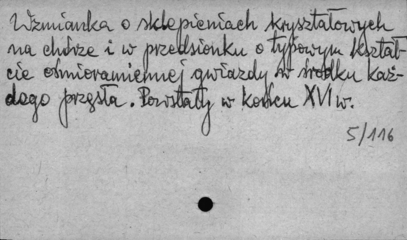 Wzmianka o sklepieniach kryształowych
na chórze i w przedsionku o typowym kształ-
cie ośmioramiennej gwiazdy w środku każ-
dego przęsła. Powstały w końcu XVI w.
5/116